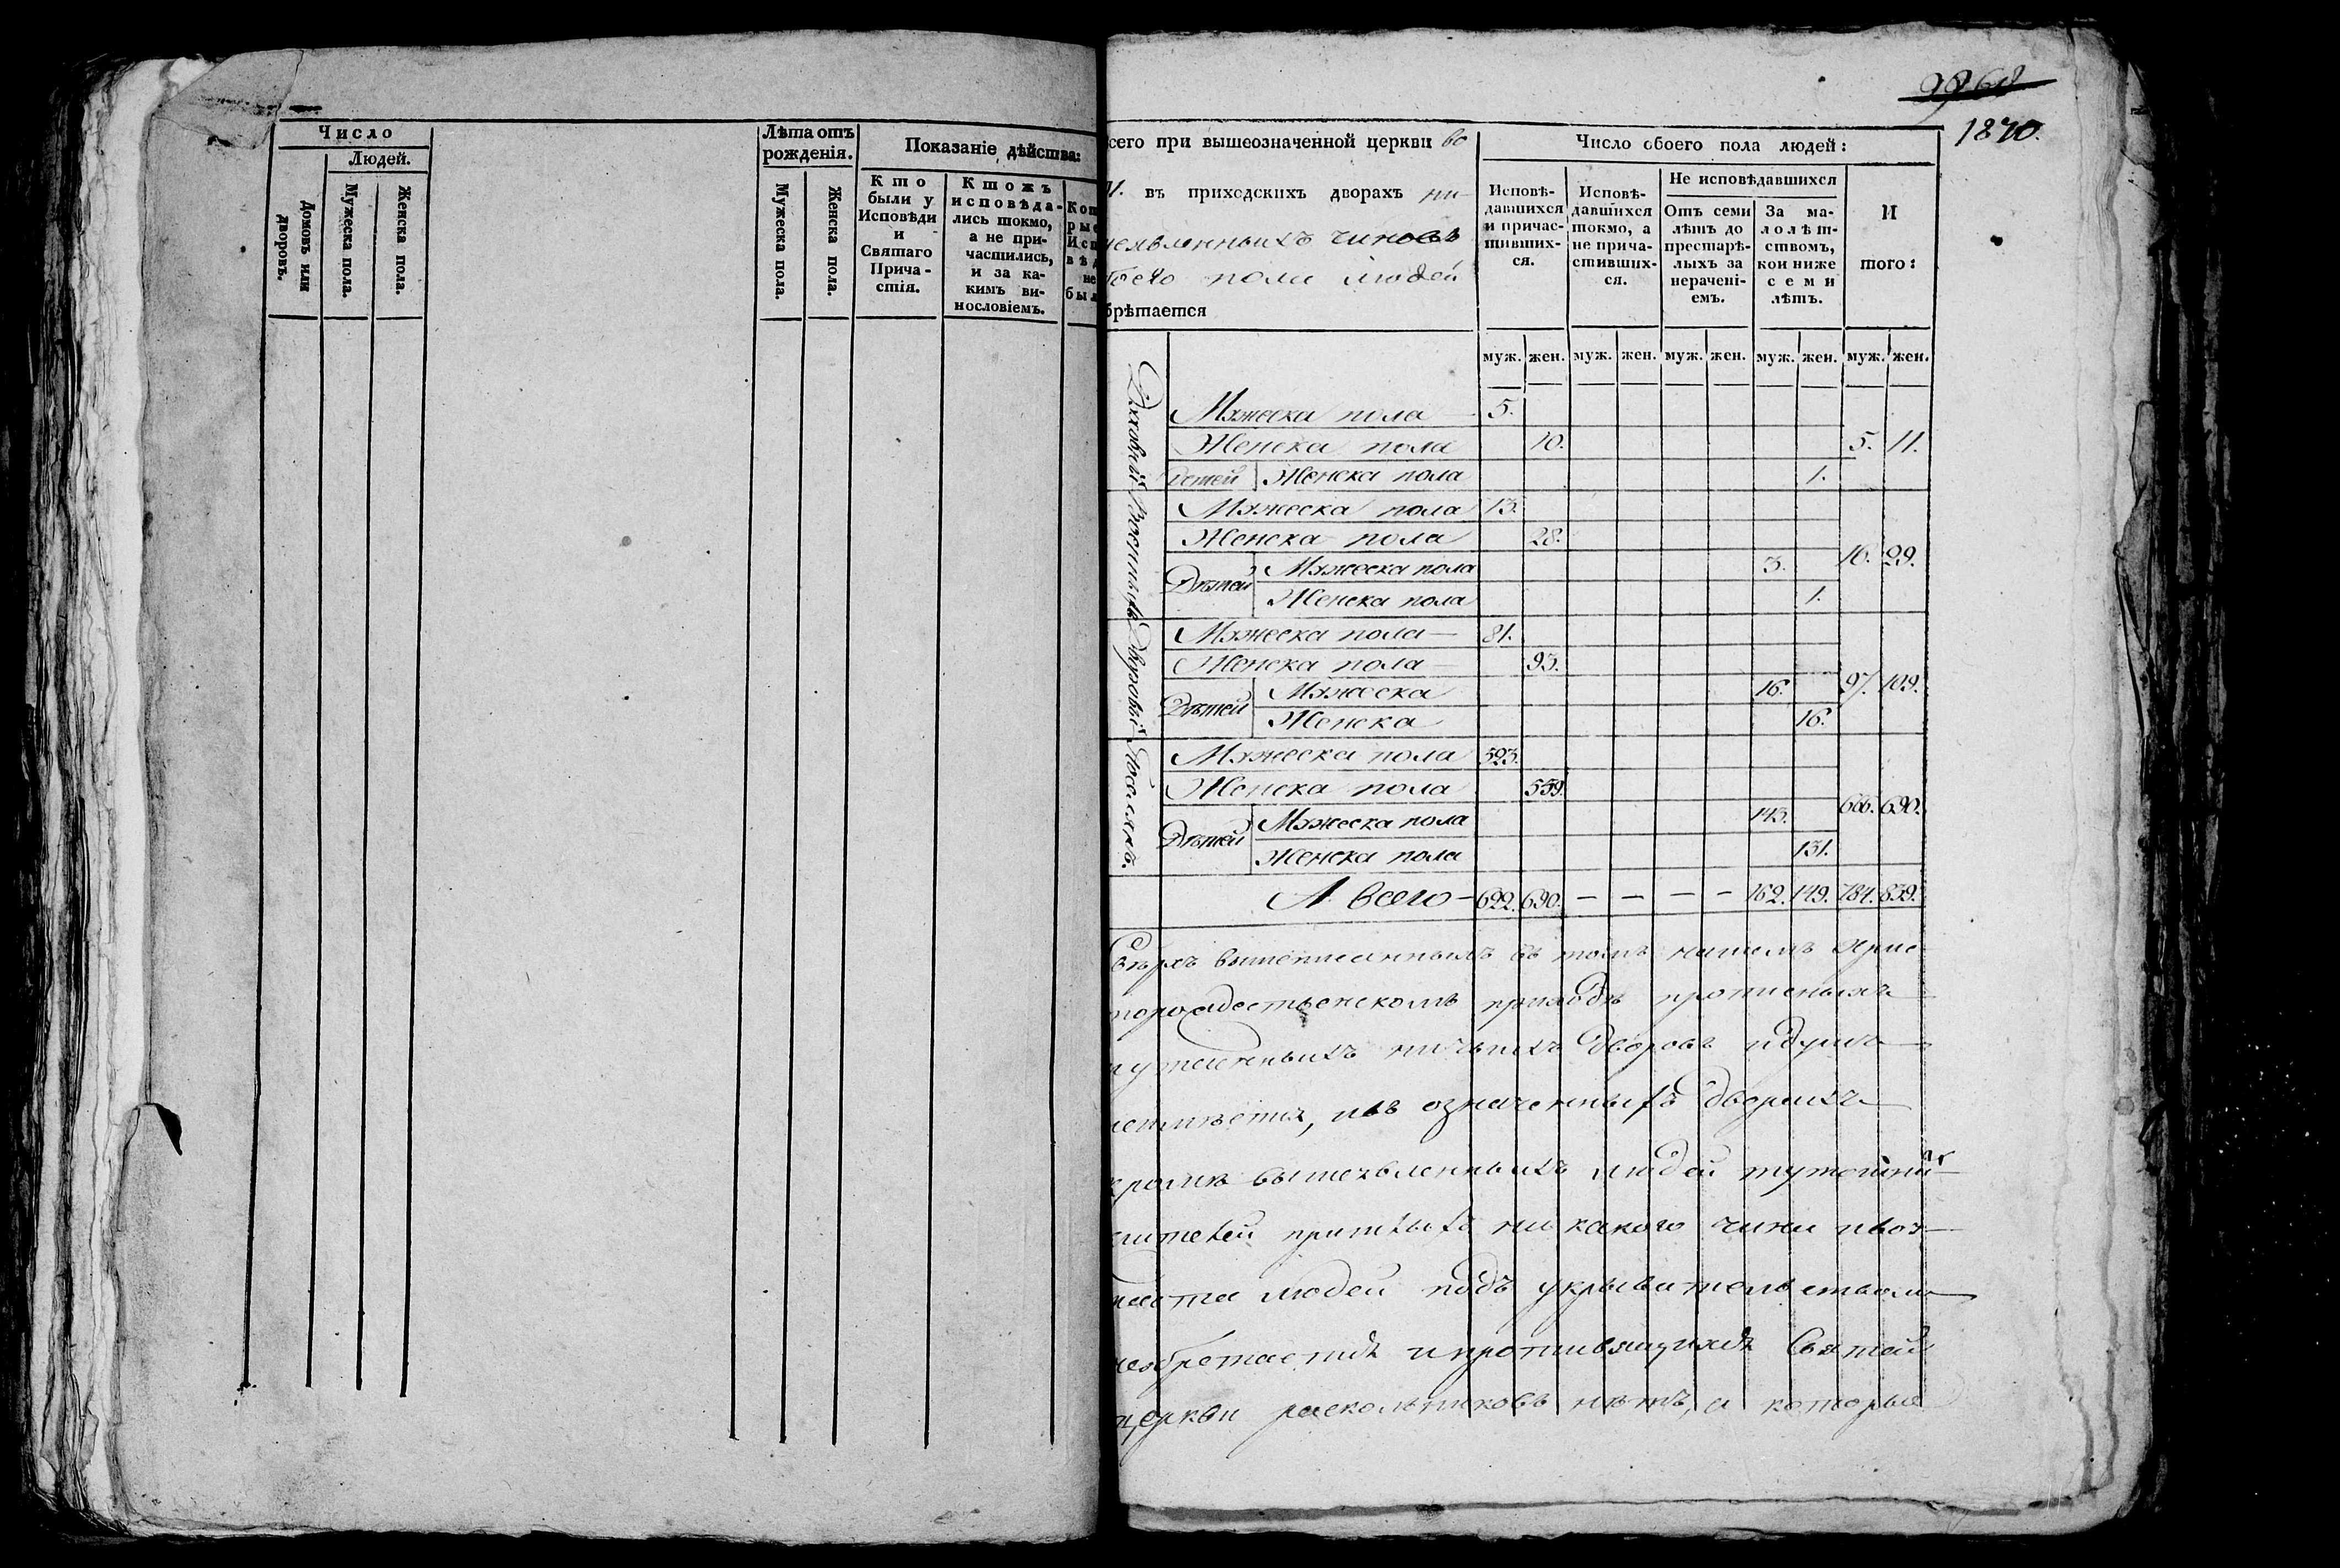 Число
Людей.
Домовъ или дворовъ.
Мужеска пола.
Женска пола.
Лѣта отъ рожденія.
Мужеска пола.
Женска пола.
Показаніе дѣйства:
Кто
были у
Исповѣди
и
Святаго
Прича-
стія.
Кто жъ
исповѣда-
лись токмо,
а не при-
частились,
и за ка-
кимъ ви-
нословіемъ.
Кот
рые
Исп
вѣд
не
был
1840.
сего при вышеозначенной церкви во
въ приходскихъ дворахъ ни-
жеявленныхъ чиновъ
боего пола людей
брѣтается
Число обоего пола людей:
Исповѣ-
давшихся
и причас-
тивших-
ся.
Исповѣ-
давшихся
токмо, а
не прича-
стивших-
ся.
Не исповѣдавшихся
Отъ семи
лѣтъ до
престарѣ-
лыхъ за
нерачені-
емъ.
За ма-
лолѣт-
ствомъ,
кои ниже
семи
лѣтъ.
И
того:
муж. жен. муж. жен. муж. жен. муж. жен. муж. жен.
Духовныхъ
Мужеска пола 5.
Женска пола 10. 5. 11.
Детей Женска пола 1.
Военныхъ
Мужеска пола 13.
Женска пола 28.
Дѣтей Мужеска пола 3. 16. 29.
Женска пола 1.
Дворовыхъ
Мужеска пола — 81.
Женска пола — 93.
Дѣтей Мужеска 16. 97. 109.
Женска 16.
Поселянъ.
Мужеска пола 523.
Женска пола 559.
Дѣтей Мужеска пола 143. 666. 690.
Женска пола 131.
А всего — 622. 690. — — — — 162. 149. 784. 839.
Сверхъ вышеписанныхъ въ томъ нашемъ Хрис
торождественскомъ приходѣ прописныхъ
утаенныхъ ничьихъ дворовъ и душъ
неимѣется, и въ означенныхъ дворахъ
кромѣ вышеявленныхъ людей тутошнихъ
жителей пришлыхъ никакого чина и воз
раста людей подъ укрывательствомъ
необретается и противящихся Святой
церкви раскольниковъ нѣтъ, а которые